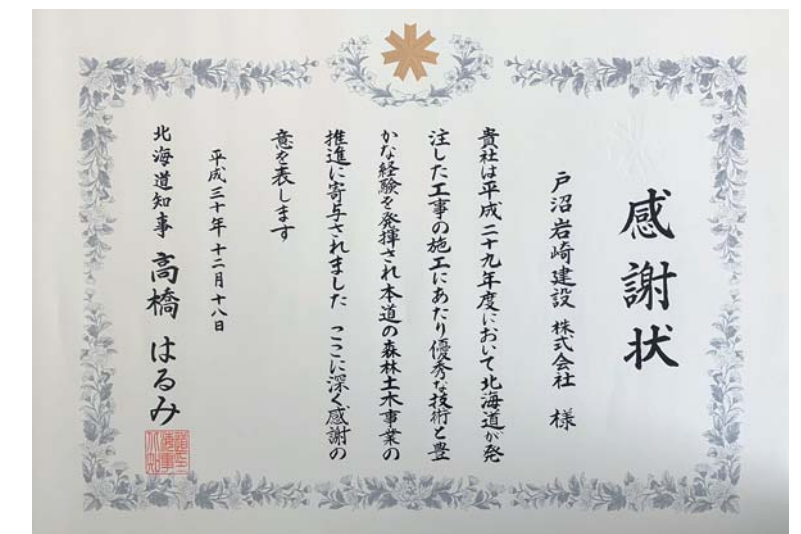 感謝状
戸沼岩崎建設 株式会社 様
貴社は平成二十九年度において北海道が発
注した工事の施工にあたり優秀な技術と豊
かな経験を発揮され本道の森林土木事業の
推進に寄与されました ここに深く感謝の
意を表します
平成三十年十二月十八日
北海道知事 高橋 はるみ